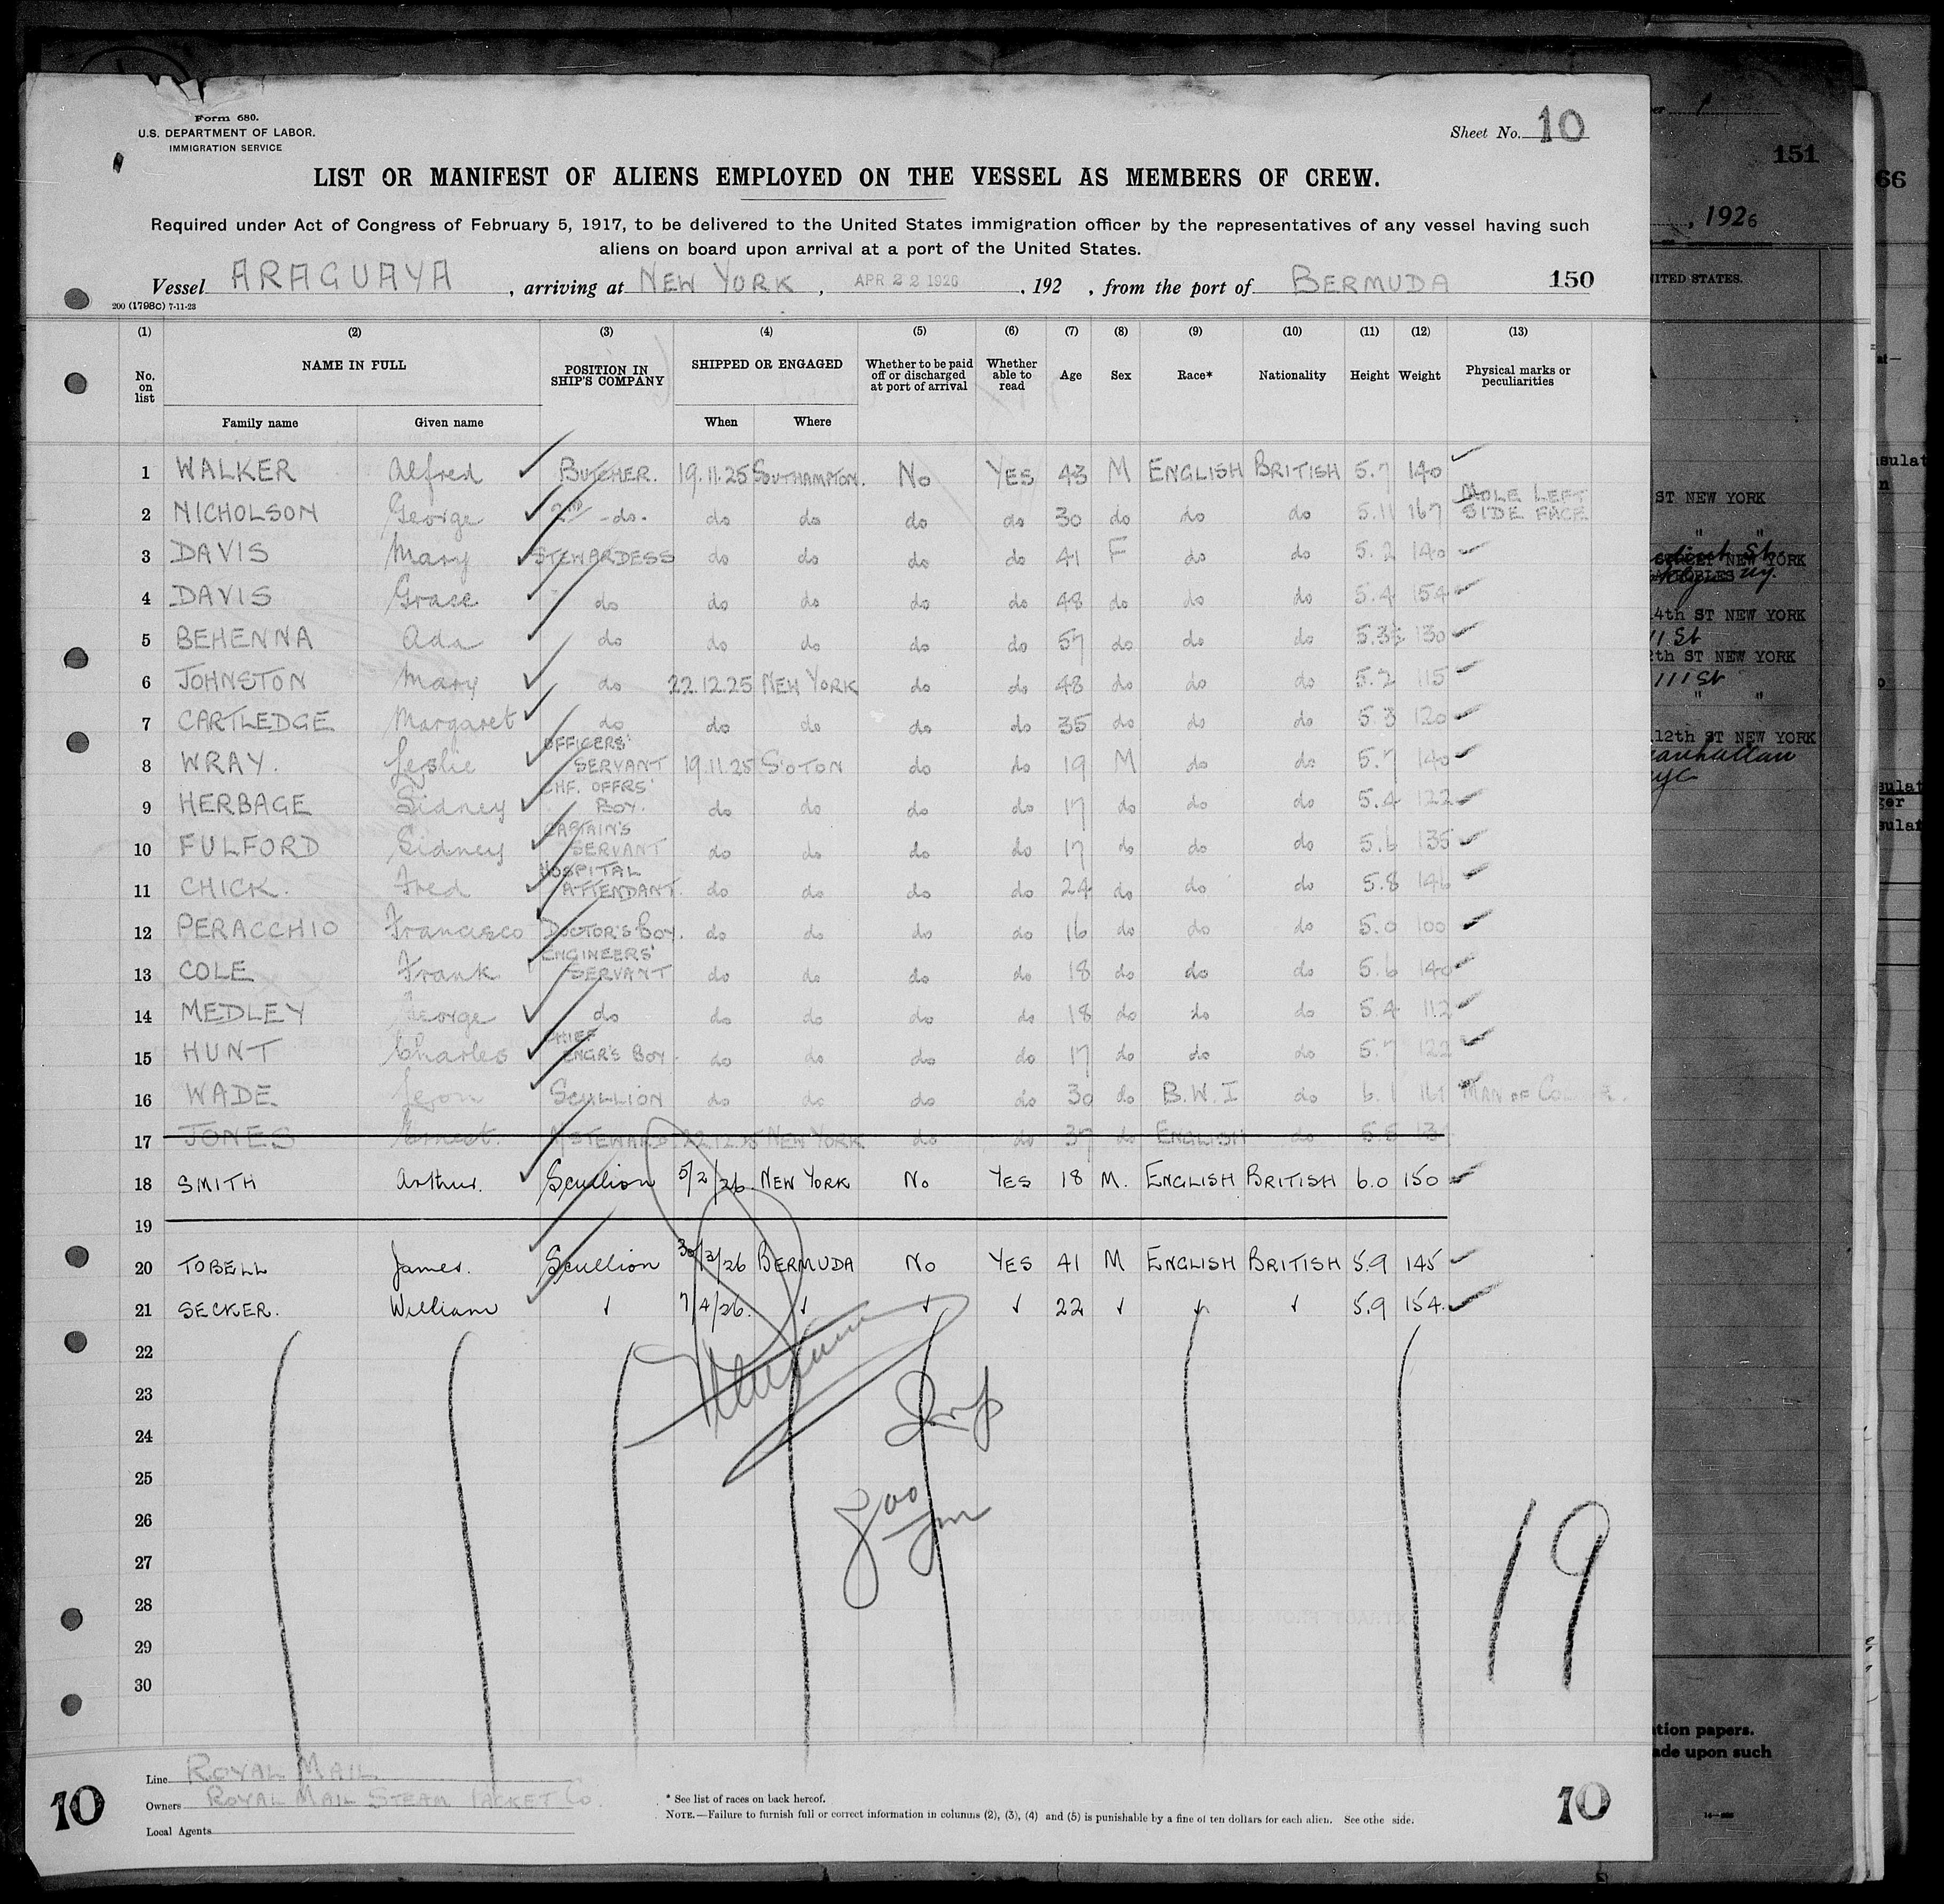 Form 680.
U.S. DEPARTMENT OF LABOR.
IMMIGRATION SERVICE
Sheet No. 10
LIST OR MANIFEST OF ALIENS EMPLOYED ON THE VESSEL AS MEMBERS OF CREW.
Required under Act of Congress of February 5, 1917, to be delivered to the United States immigration officer by the representatives of any vessel having such
aliens on board upon arrival at a port of the United States.
Vessel ARAGUAYA, arriving at NEW YORK, APR 22 1926, 192 , from the port of BERMUDA 150
200 (1798C) 7-11-23
(1) (2) (3) (4) (5) (6) (7) (8) (9) (10) (11) (12) (13)
No. on list NAME IN FULL POSITION IN SHIP'S COMPANY SHIPPED OR ENGAGED Whether to be paid off or discharged at port of arrival Whether able to read Age Sex Race* Nationality Height Weight Physical marks or peculiarities
Family name Given name When Where
1 WALKER Alfred BUTCHER. 19.11.25 SOUTHAMPTON. No YES 43 M ENGLISH BRITISH 5.7 140
2 NICHOLSON George 2ND -do- do do do do 30 do do do 5.11 167 MOLE LEFT SIDE FACE
3 DAVIS Mary STEWARDESS do do do do 41 F do do 5.2 140
4 DAVIS Grace do do do do do 48 do do do 5.4 154
5 BEHENNA Ada do do do do do 57 do do do 5.3½ 130
6 JOHNSTON Mary do 22.12.25 NEW YORK do do 48 do do do 5.2 115
7 CARTLEDGE Margaret do do do do do 35 do do do 5.3 120
8 WRAY. Leslie OFFICERS' SERVANT 19.11.25 S'OTON do do 19 M do do 5.7 140
9 HERBAGE Sidney CHF. OFFRS' BOY. do do do do 17 do do do 5.4 122
10 FULFORD Sidney CAPTAIN'S SERVANT do do do do 17 do do do 5.6 135
11 CHICK. Fred HOSPITAL ATTENDANT. do do do do 24 do do do 5.8 146
12 PERACCHIO Francisco DOCTOR'S BOY. do do do do 16 do do do 5.0 100
13 COLE Frank ENGINEERS' SERVANT do do do do 18 do do do 5.6 140
14 MEDLEY George do do do do do 18 do do do 5.4 112
15 HUNT Charles CHIEF ENGR'S BOY. do do do do 17 do do do 5.7 122
16 WADE Leon SCULLION do do do do 30 do B.W.I do 6.1 161 MAN OF COLOUR.
17 JONES Ernest. STEWARD 22.12.25 NEW YORK do do 37 do ENGLISH do 5.8
18 SMITH Arthur. Scullion 5/2/26 NEW YORK No YES 18 M. ENGLISH BRITISH 6.0 150
19
20 TOBELL James. Scullion 30/3/26 BERMUDA No YES 41 M ENGLISH BRITISH 5.9 145
21 SECKER. William 7/4/26. 22 5.9 154.
22
23
24
25
26
27
28
29
30
19
Line ROYAL MAIL
Owners ROYAL MAIL STEAM PACKET Co.
Local Agents
* See list of races on back hereof.
NOTE.—Failure to furnish full or correct information in columns (2), (3), (4) and (5) is punishable by a fine of ten dollars for each alien. See othe side.
10
10
151
66
, 1926
NITED STATES.
ST NEW YORK
NEW YORK
4th ST NEW YORK
11 St
th ST NEW YORK
111 St
12th ST NEW YORK
anhattan
tion papers.
ade upon such